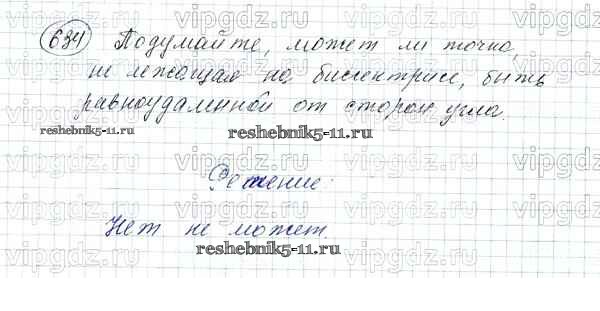 634 Подумайте, может ли точка,
не лежащая на биссектрисе, быть
равноудаленной от сторон угла.
reshebnik5-11.ru
reshebnik5-11.ru
Решение:
Нет не может
reshebnik5-11.ru
vipgdz.ru